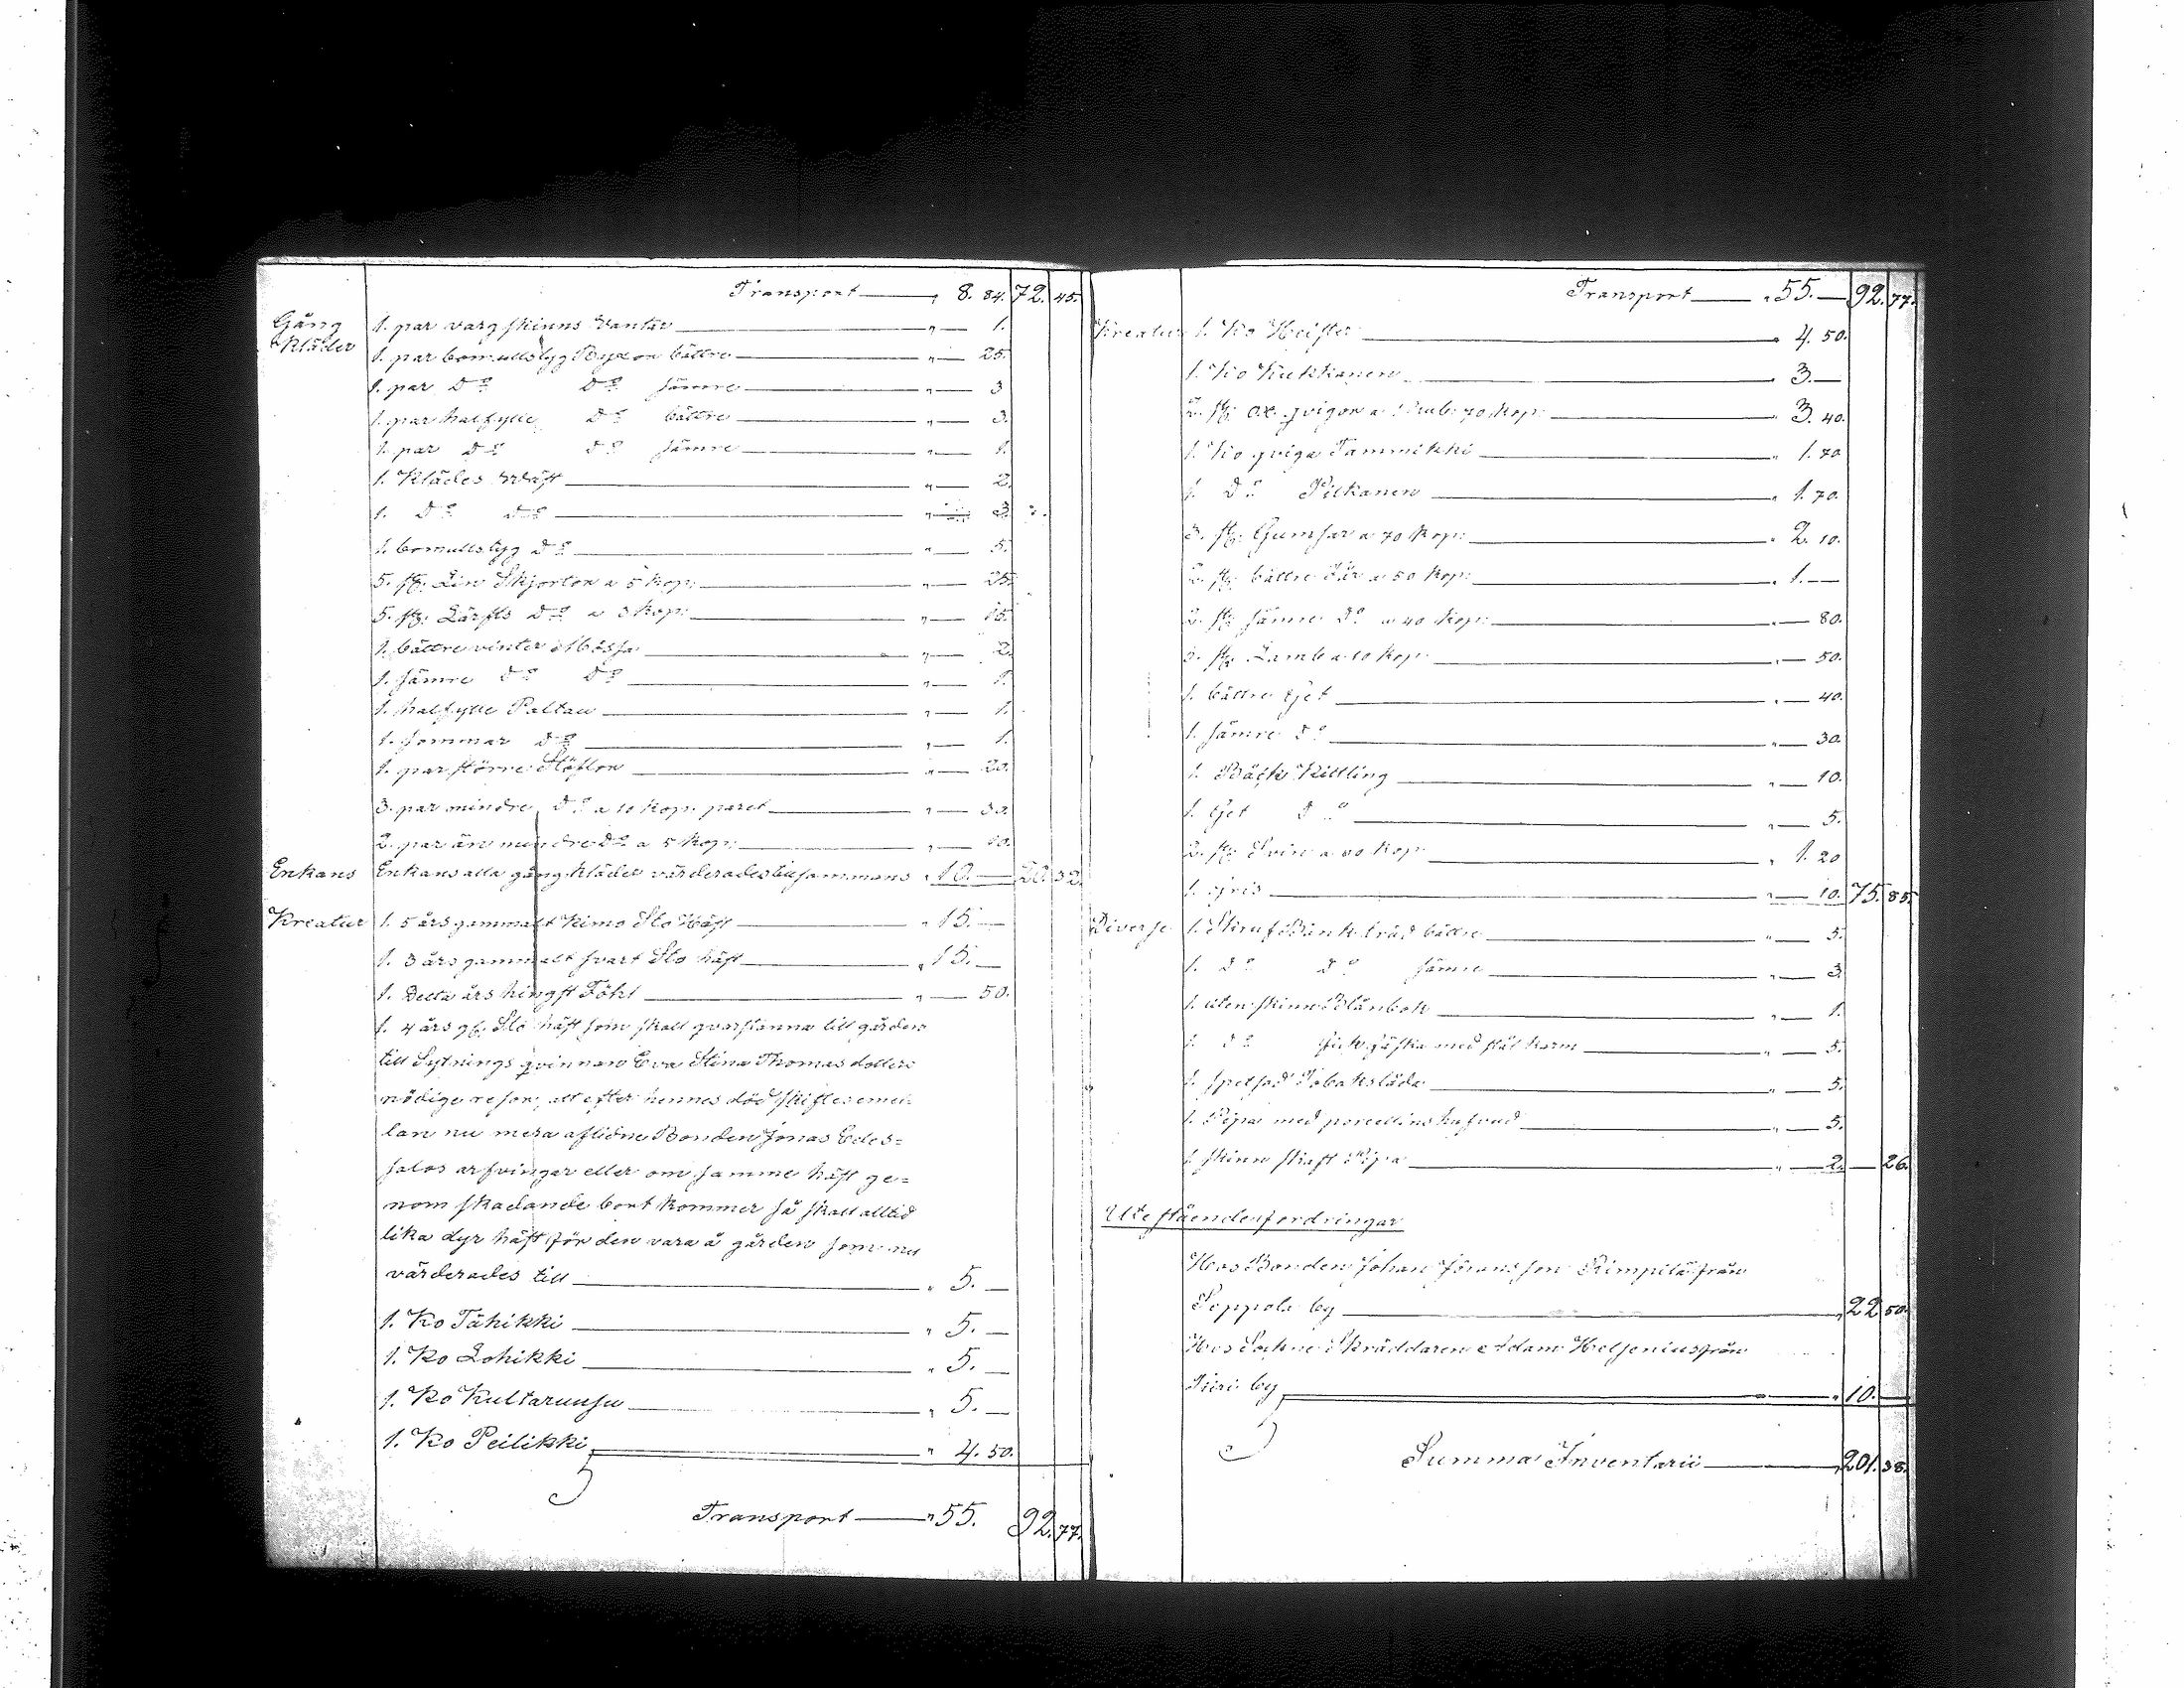 Transport — " 8. 84. 72. 45.
Gång Kläder
1. par varg skinns Vantar — " — 1.
1. par bomullstyg Byxor bättre — " — 25.
1. par Do Do sämre — " — 3
1. par halfylle Do bättre — " — 3.
1. par Do Do sämre — " — 1.
1. Klädes Wäst — " — 2.
1. Do Do — " 3
1. bomullstyg Do — " — 5.
5. st: Lin Skjortor a 5 Kop: — " — 25.
5. st: Lärfts Do a 3 Kop: — " — 15.
1. bättre vinter Mössa — " — 2.
1. sämre Do Do — " — 1.
1. halfylle Paltau — " — 1.
1. sommar Do — " — 1.
1. par större Stöflor — " — 20.
3. par mindre Do a 10 Kop: paret — " — 30.
2. par än mindre Do a 5 Kop: — " — 10.
Enkans Enkans alla gång kläder värderades tillsammans " 10. — 20. 32.
Kreatur 1. 5 års gammalt Kimo Sto Häst — " 15. —
1. 3 års gammalt svart Sto häst — " 15. —
1. Detta års hingst Föhl — " — 50.
1. 4 års gl: Sto häst som skall qvarstanna till gården
till Sytnings qvinnan Eva Stina Thomas dotters
nödige resor, att efter hennes död skiftes emel-
lan nu mera aflidne Bonden Jonas Edes=
salos arfvingar eller om samme häst ge=
nom skadande bort kommer så skall alltid
lika dyr häst för den vara å gården som nu
värderades till — " 5. —
1. Ko Tähikki — " 5. —
1. Ko Lohikki — " 5. —
1. Ko Kultaruusu — " 5. —
1. Ko Peilikki — " 4. 50.
Transport — " 55. 92. 77.
Transport — " 55. — 92. 77.
Kreatur 1. Ko Heister — " 4. 50.
1. Ko Kukkanen — " 3. —
2. st: ox qvigor a 1 Rub: 70 Kop: — " 3. 40.
1. Ko qviga Tammikki — " 1. 70
1. Do Pilkanen — " 1. 70.
3. st: Gumsar a 70 Kop: — " 2. 10.
2. st: bättre Får a 50 Kop: — " 1. —
2. st: sämre Do a 40 Kop: — " — 80.
5. st: Lamb a 10 Kop: — " — 50.
1. bättre Get — " — 40.
1. sämre Do — " — 30.
1. Bäck Killing — " — 10.
1. Get Do — " — 5.
2. st: Svin a 60 Kop: — " 1. 20
1. Gris — " — 10. 75. 85.
Diverse 1. bättre — " — 5.
1. Do Do sämre — " — 3.
1. skinn Plånbok — " — 1.
1. Do med stål karm — " — 5.
1. Tobakslåda — " — 5.
1. Pipa med porcellins hufvud — " — 5.
1. skinn skaft Pipa — " — 2. — 26.
Uteståendes fordringar
Hos Bonden Johan Göransson Rimpilä från
Seppola by — " 22 50.
Hos Sockne Skräddaren Adam Helsenius från
by — " 10. —
Summa Inventarii — " 201. 38.